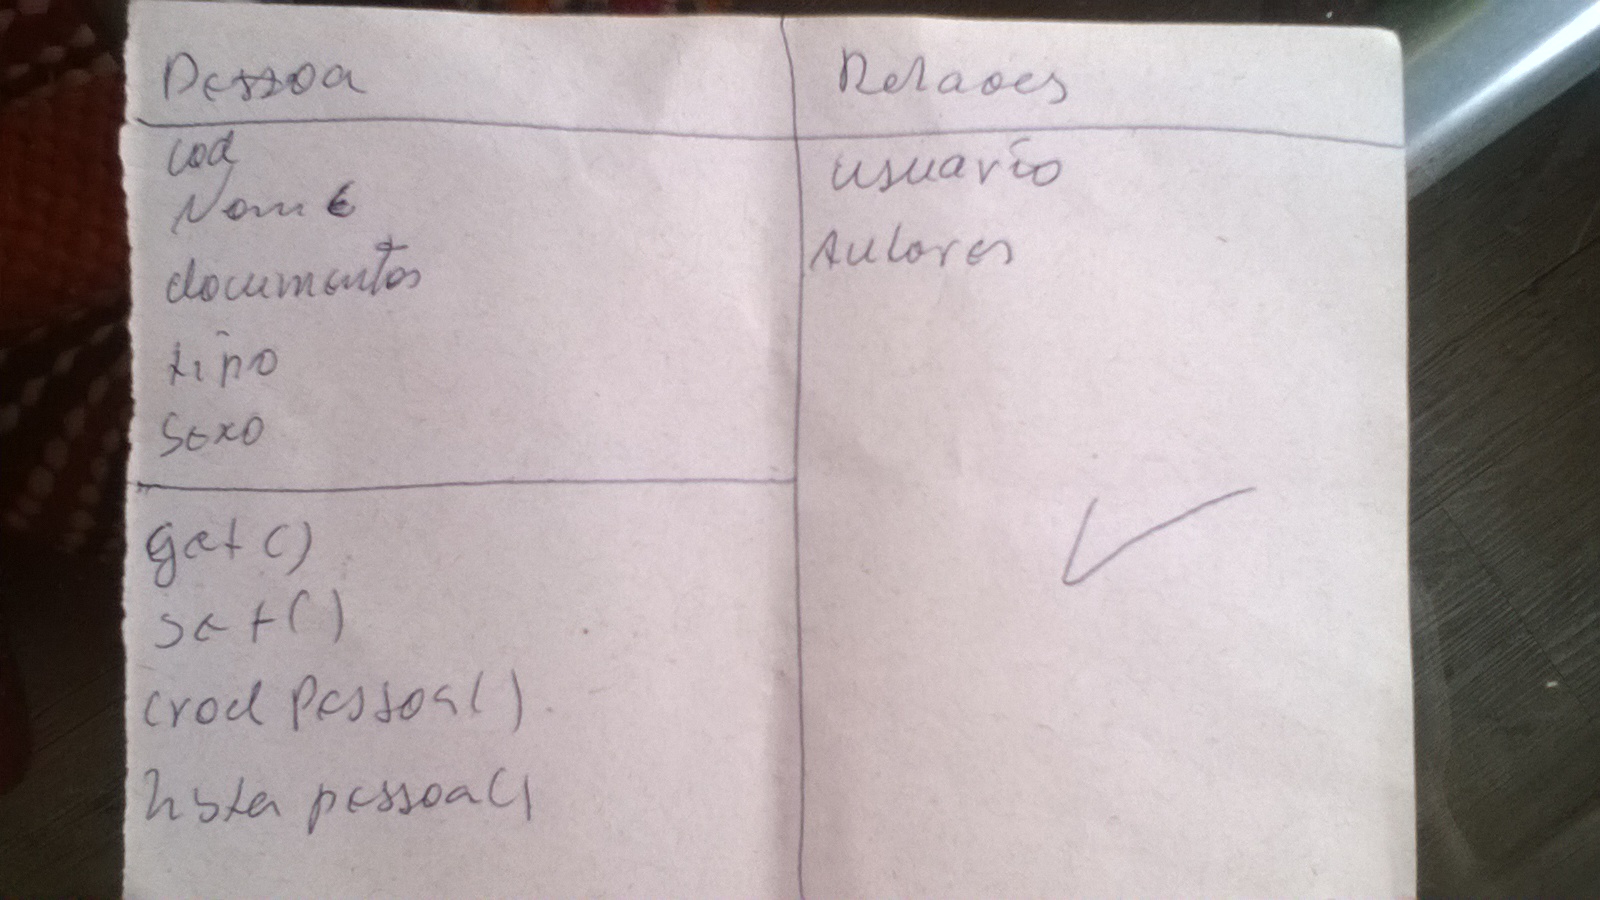 Pessoa
cod
Nome
documentos
tipo
sexo
get()
set()
crod pessoa()
lista pessoa()
Relaoes
usuario
Autores